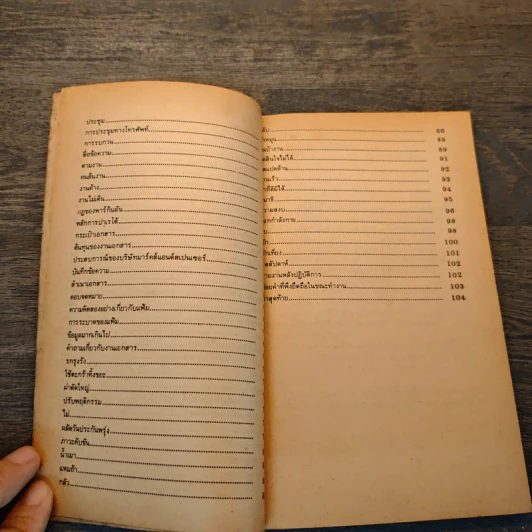 ประชุม
การประชุมทางโทรศัพท์
การรบกวน
สื่อข้อความ
ตามงาน
คนล้นงาน
งานค้าง
งานไม่เดิน
กฎของพาร์กินสัน
หลักการปาเรโต้
กระเป๋าเอกสาร
ต้นทุนของงานเอกสาร
ประสบการณ์ของบริษัทมาร์คส์แอนด์สเปนเซอร์
บันทึกข้อความ
สำเนาเอกสาร
ตอบจดหมาย
ความคิดสองอย่างเกี่ยวกับแฟ้ม
การระบาดของแฟ้ม
ข้อมูลมากเกินไป
คำถามเกี่ยวกับงานเอกสาร
รกรุงรัง
ใช้ตะกร้าทิ้งขยะ
ผ่าตัดใหญ่
ปรับพฤติกรรม
ไม่
ผลัดวันประกันพรุ่ง
ภาวะคับขัน
น้ำเมา
แหมถ้า
กลัว
86
88
89
ตัดสินใจไม่ได้ 91
92
93
94
95
96
ออกกำลังกาย 98
99
100
101
102
รายงานหลังปฏิบัติการ 102
ถ้อยคำที่พึงยึดถือในขณะทำงาน 103
คำสุดท้าย 104